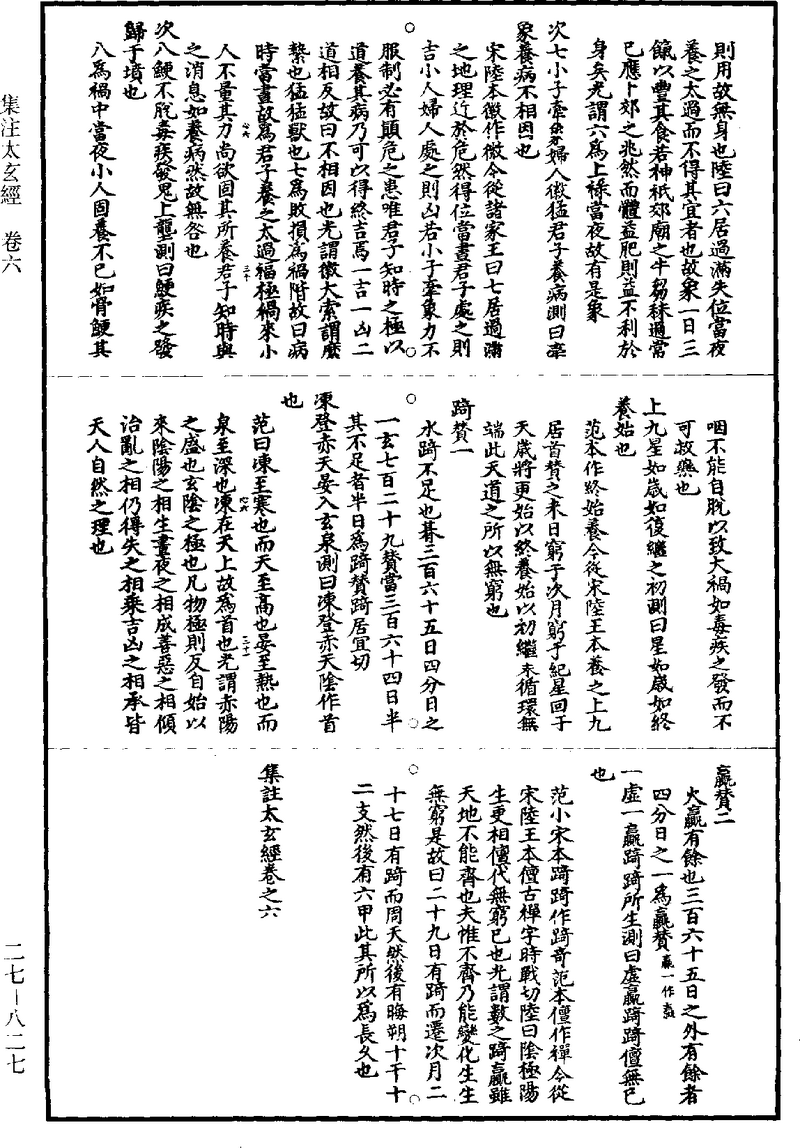 則用故無身也陸曰六居過滿失位當夜
養之太過而不得其宜者也故象一日三
餼以豐其食若神祇郊廟之牛芻秣適當
已應卜郊之兆然而體益肥則益不利於
身矣光謂六爲上祿當夜故有是象
次七小子牽象婦人徽猛君子養病測曰牽
象養病不相因也
宋陸本徽作微今從諸家王曰七居過滿
之地理近於危然得位當晝君子處之則
吉小人婦人處之則凶若小子牽象力不
服制必有顚危之患唯君子知時之極以
道養其病乃可以得終吉焉一吉一凶二
道相反故曰不相因也光謂徽大索謂縻
縶也猛猛獸也七爲敗損爲禍階故曰病
時當晝故爲君子養之太過福極禍來小
人不量其力尚欲固其所養君子知時與
之消息如養病然故無咎也
次八鯁不脫毒疾發鬼上壟測曰鯁疾之發
歸于墳也
八爲禍中當夜小人固養不已如骨鯁其
咽不能自脫以致大禍如毒疾之發而不
可救藥也
上九星如歲如復繼之初測曰星如歲如終
養始也
范本作終始養今從宋陸王本養之上九
居首贊之末日窮于次月窮于紀星回于
天歲將更始以終養始以初繼末循環無
端此天道之所以無窮也
踦贊一
水踦不足也朞三百六十五日四分日之
一玄七百二十九贊當三百六十四日半
其不足者半日爲踦贊踦居宜切
凍登赤天晏入玄泉測曰凍登赤天陰作首
也
范曰凍至寒也而天至高也晏至熱也而
泉至深也凍在天上故爲首也光謂赤陽
之盛也玄陰之極也凡物極則反自始以
來陰陽之相生晝夜之相成善惡之相傾
治亂之相仍得失之相乘吉凶之相承皆
天人自然之理也
贏贊二
火贏有餘也三百六十五日之外有餘者
四分日之一爲贏贊贏一作嬴
一虛一贏踦踦所生測曰虛贏踦踦儃無已
也
范小宋本踦踦作踦奇范本儃作禪今從
宋陸王本儃古禪字時戰切陸曰陰極陽
生更相儃代無窮已也光謂數之踦贏雖
天地不能齊也夫惟不齊乃能變化生生
無窮是故曰二十九日有踦而遷次月二
十七日有踦而周天然後有晦朔十干十
二支然後有六甲此其所以爲長久也
集註太玄經卷之六
集注太玄經　卷六
二七—八二七